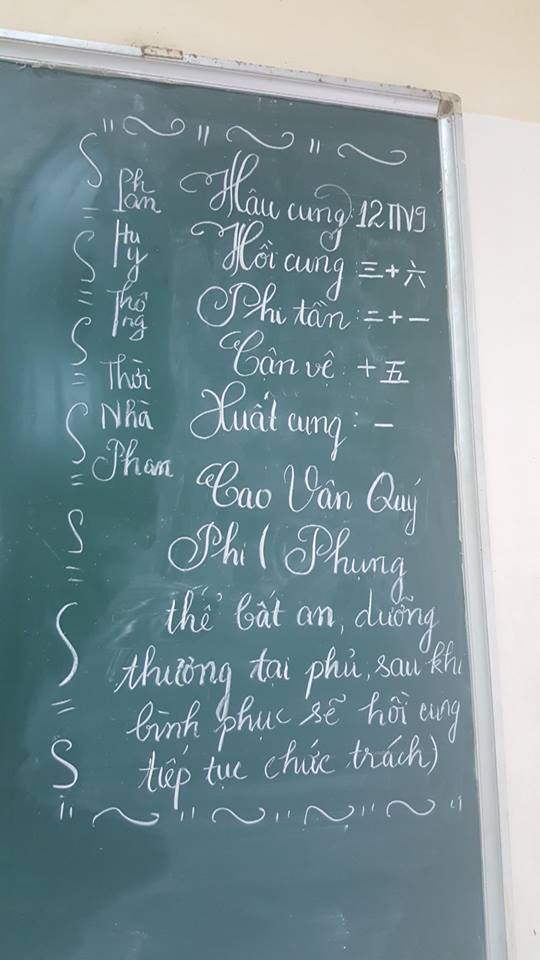 Phan
Huy
Thông
Thời
Nhà
Phan
Hậu cung: 12TN9
Hồi cung 三 + 六
Phi tần: 二 + 一
Cận vệ: + 五
Xuất cung: 一
Cao Vân Quý
Phi ( Phụng
thể bất an, dưỡng
thương tại phủ, sau khi
bình phục sẽ hồi cung
tiếp tục chức trách)